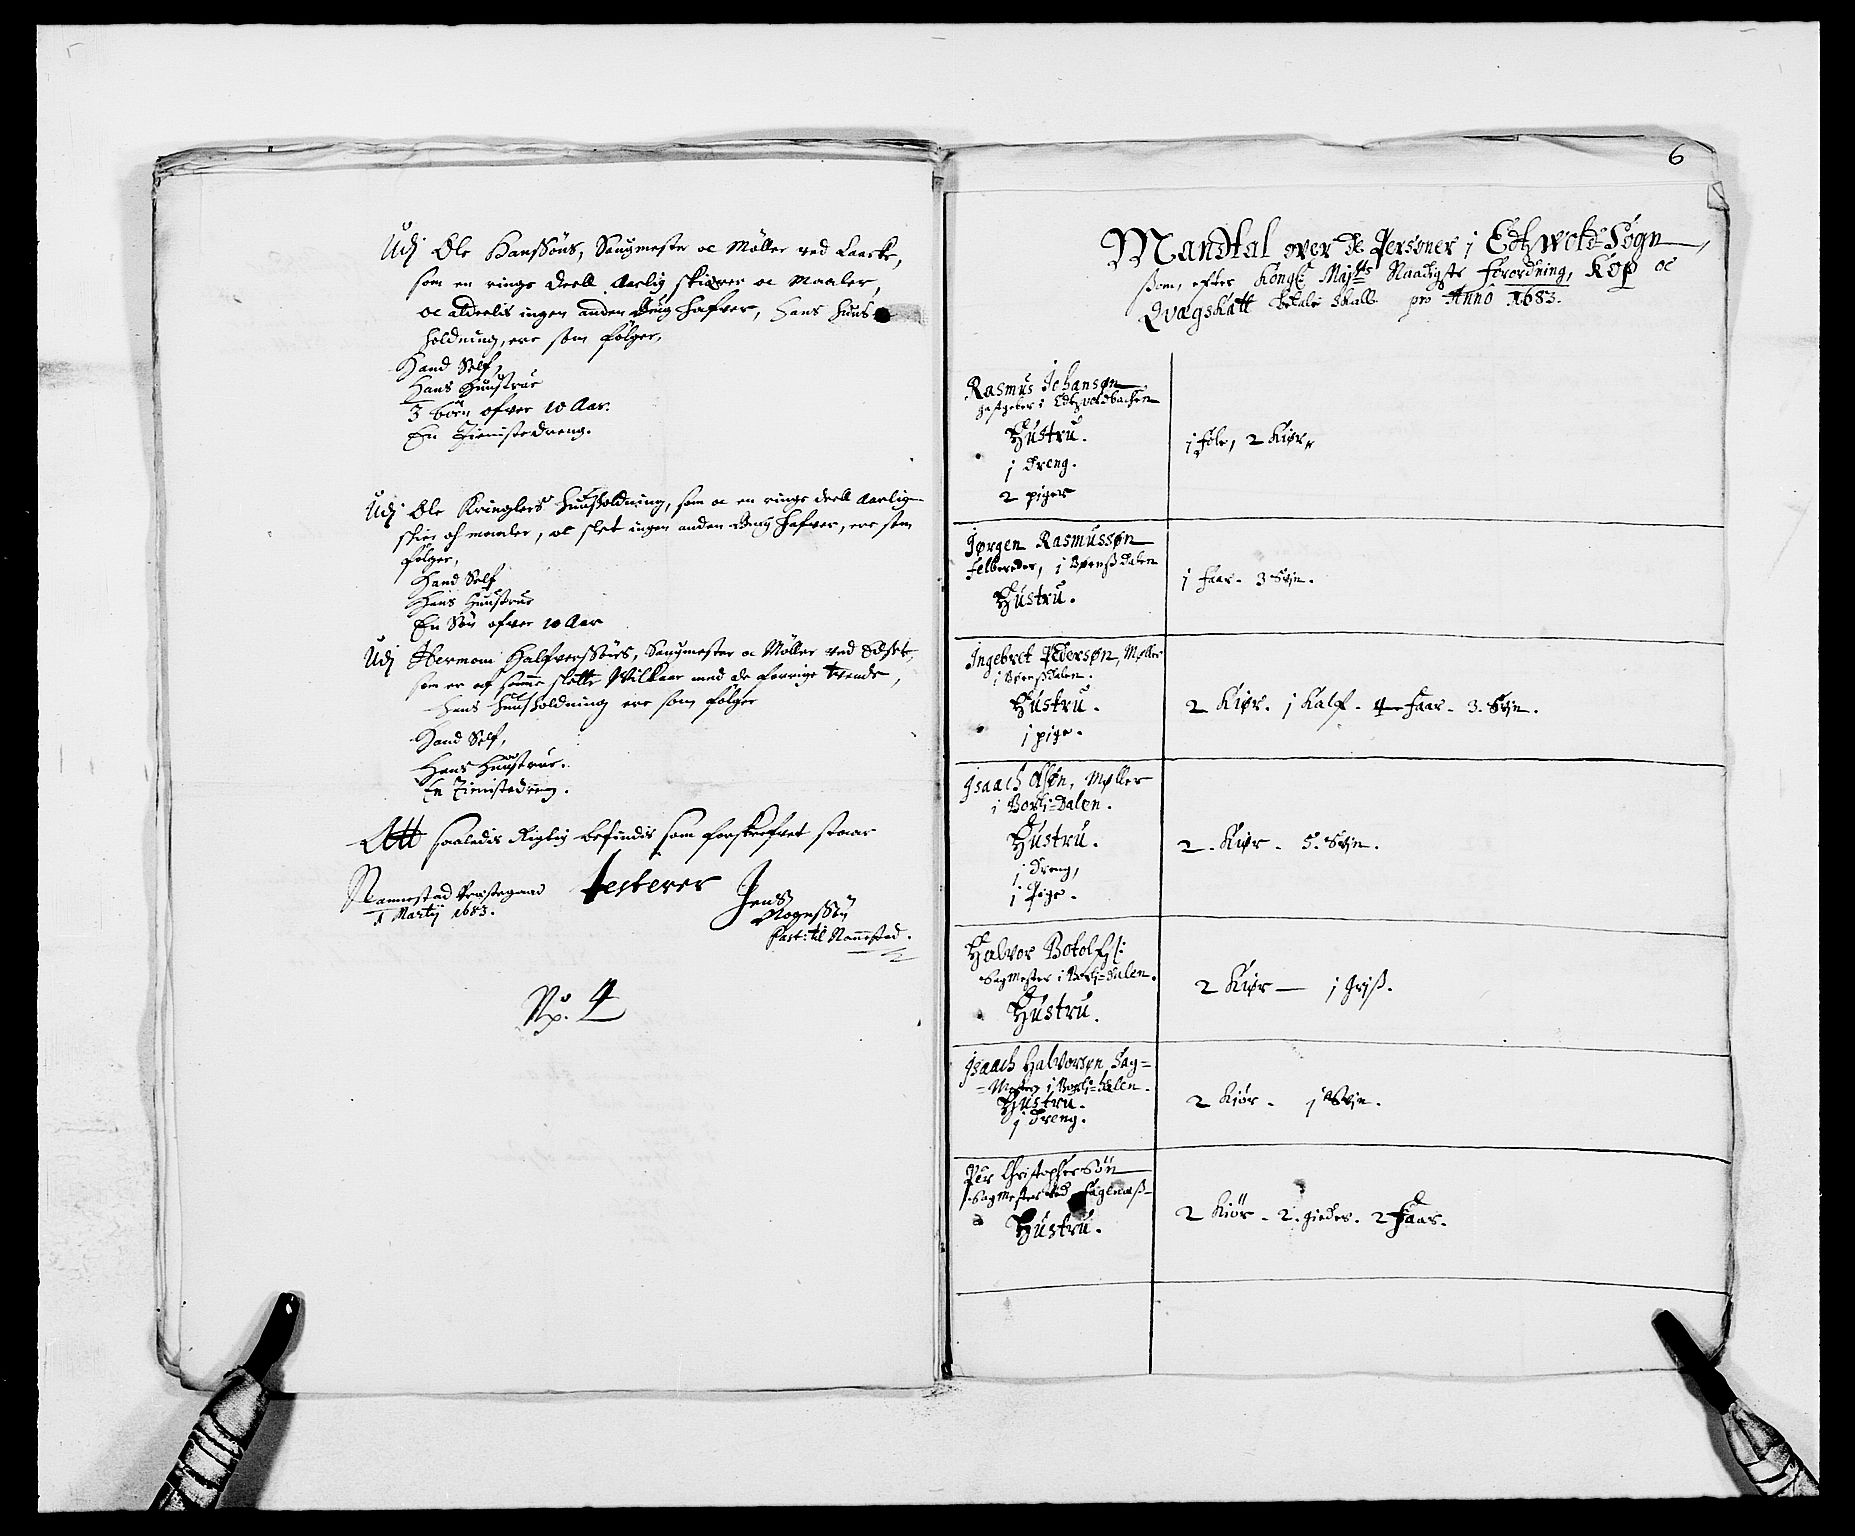 Udj Ole Hanssøns, Saugmester oc Møller ved
som en ringe deell Aarlig skierer oc maaler,
oc aldeelis ingen anden brug hafver, hans huus-
holdning, ere som følger,
Hand Self,
Hans Huustrue
3 børn ofver 10 Aar.
En Tienistedreng.
Udj Ole Kringlers huusholdning, som oc en ringe deell Aarlig
skier oc maaler, oc slet ingen anden brug hafver, ere som
følger,
Hand Self
Hans Huustrue
En Søn ofver 10 Aar
Udj Hermom Halfverssøns, Saugmester oc Møller ved
som er af samme slette Vilkaar med de forrige tvende,
hans huusholdning ere som følger
Hand Self,
Hans Huustrue.
En Tienistedreng.
Att saaledis Rigtig befindis som forskrefvet staar
Nannestad Præstegaard testerer Jens
1 Martij 1683.
Mognssøn
Past: til Nannestad.
No. 4
6
Mandtal over de Personer i Edtzwold Sogn,
som, efter Kongl Maj:ts Naadigste forordning, Kop oc
Qvægskatt betale skall pro Anno 1683.
Rasmus Johansøn
gestgeber i Edtzvoldbachen
Hustru.
j dreng.
2 piger
j fole, 2 Kiør,
Jørgen Rasmussøn
felbereder, i Bønsdalen
Hustru.
1 faar. 3 Svin.
Ingebret Pedersøn, Møller
i Bønsdalen.
Hustru.
j pige.
2 Kiør. j Kalf. 4 faar. 3. Svin.
Isaach Olsøn, Møller
i Borli=dalen.
Hustru.
j dreng,
j Pige.
2. Kiør. 5. Svin.
Halvor Botolfs:
Sagmester i Borli=dalen.
Hustru.
2 Kiør — j gris.
Isaach Halvorsøn, Sag=
=Mester i Borli=dalen.
Hustru.
j dreng.
2 Kiør. j Svin.
Per Christophersøn
Sagmester ved
Hustru.
2 Kiør. 2. gieder. 2 Faar.